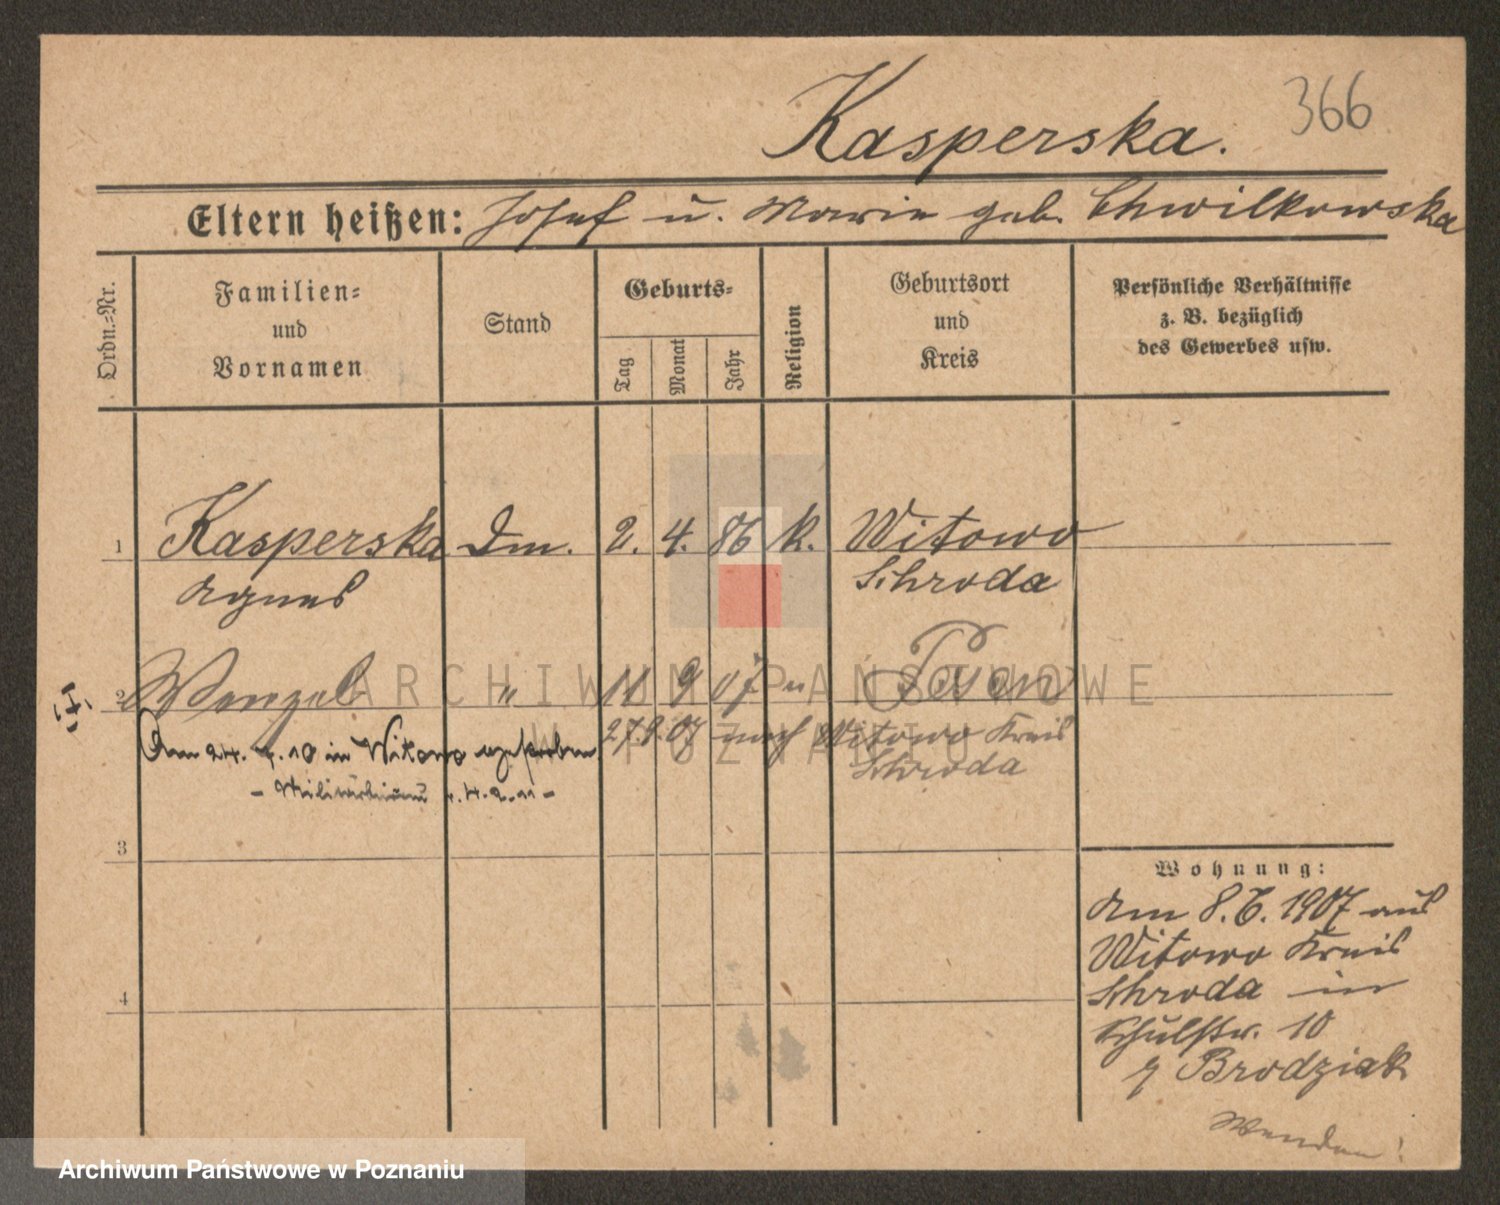 366
Kasperska.
Eltern heißen: Josef u. Marie geb. Chwilkowska
Ordn.=Nr.
Familien=
und
Vornamen
Stand
Geburts=
Tag
Monat
Jahr
Religion
Geburtsort
und
Kreis
Persönliche Verhältnisse
z. B. bezüglich
des Gewerbes usw.
1 Kasperska Dm. 2. 4. 86 k. Witowo
Agnes Schroda
2 Wenzel " 11 9 07 " Posen
Am 24. 7. 10 in Witowo gestorben.
27.9.07 nach Witowo Kreis
Schroda
3
4
Wohnung:
Am 8.6.1907 aus
Witowo Kreis
Schroda in
Schulstr. 10
Brodziak
Wenden!
ARCHIWUM PAŃSTWOWE
W POZNANIU
Archiwum Państwowe w Poznaniu